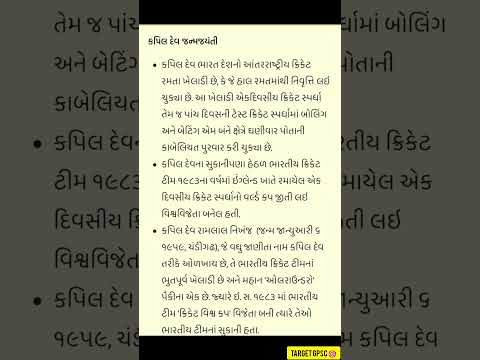 કપિલ દેવ જન્મજયંતી
કપિલ દેવ ભારત દેશનો આંતરરાષ્ટ્રીય ક્રિકેટ
રમતા ખેલાડી છે, કે જે હાલ રમતમાંથી નિવૃત્તિ લઇ
ચુક્યા છે. આ ખેલાડી એકદિવસીય ક્રિકેટ સ્પર્ધા
તેમ જ પાંચ દિવસની ટેસ્ટ ક્રિકેટ સ્પર્ધામાં બોલિંગ
અને બેટિંગ એમ બંને ક્ષેત્રે ઘણીવાર પોતાની
કાબેલિયત પુરવાર કરી ચુક્યા છે.
કપિલ દેવના સુકાનીપણા હેઠળ ભારતીય ક્રિકેટ
ટીમ ૧૯૮૩ના વર્ષમાં ઇંગ્લેન્ડ ખાતે રમાયેલ એક
દિવસીય ક્રિકેટ સ્પર્ધાનો વર્લ્ડ કપ જીતી લઇ
વિશ્વવિજેતા બનેલ હતી.
કપિલ દેવ રામલાલ નિખંજ (જન્મ જાન્યુઆરી ૬
૧૯૫૯, ચંડીગઢ), જે વધુ જાણીતા નામ કપિલ દેવ
તરીકે ઓળખાય છે, તે ભારતીય ક્રિકેટ ટીમનાં
ભુતપૂર્વ ખેલાડી છે અને મહાન 'ઓલરાઉન્ડરો'
પૈકીના એક છે. જ્યારે ઇ. સ. ૧૯૮૩ માં ભારતીય
ટીમ 'ક્રિકેટ વિશ્વ કપ' વિજેતા બની ત્યારે તેઓ
ભારતીય ટીમનાં સુકાની હતા.
TARGET GPSC